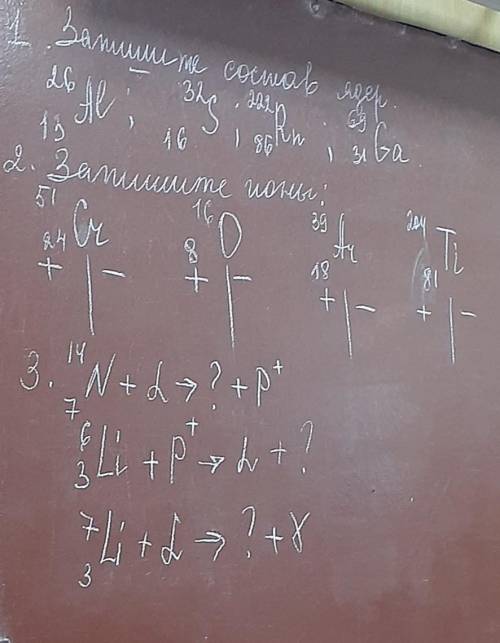 1. Запишите состав ядер.
²⁶₁₃Al; ³²₁₆S; ²²²₈₆Rn; ⁶⁹₃₁Ga
2. Запишите ионы:
⁵¹₂₄Cr ¹⁶₈O ³⁹₁₈Ar ²⁰⁴₈₁Ti
+ | − + | − + | − + | −
3. ¹⁴₇N + α → ? + p⁺
⁶₃Li + p⁺ → α + ?
⁷₃Li + α → ? + γ